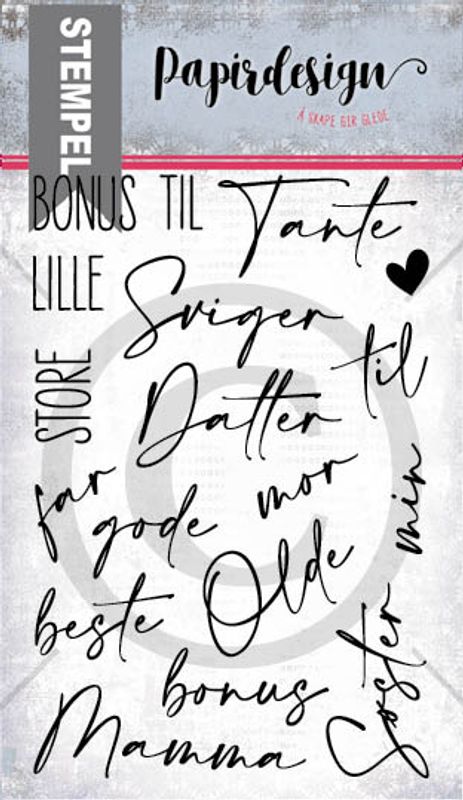 STEMPEL
Papirdesign
Å SKAPE GIR GLEDE
BONUS TIL
Tante
LILLE
Sviger
STORE
til
Datter
far
mor
gode
min
Olde
beste
Søster
bonus
Mamma
©